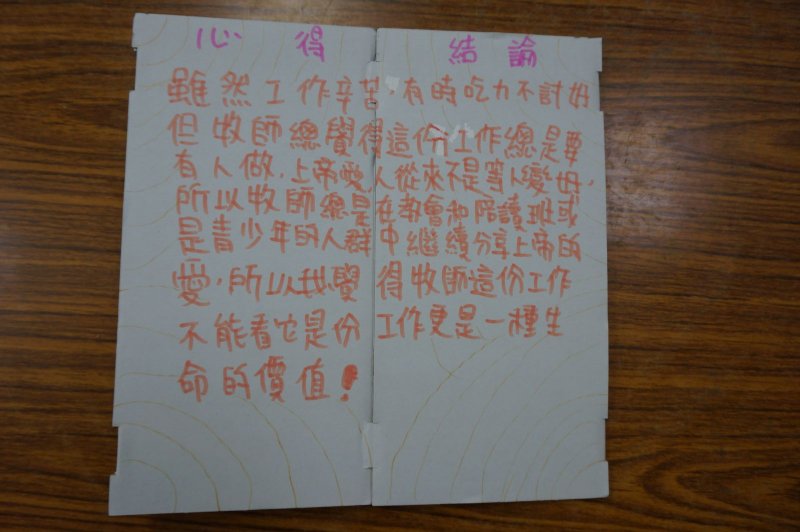 心得 結論
雖然工作辛苦,有時吃力不討好
但牧師總覺得這份工作總是要
有人做,上帝愛人從來不是等人變好,
所以牧師總是在教會和陪讀班或
是青少年的人群中繼續分享上帝的
愛,所以我覺得牧師這份工作
不能看它是份工作更是一種生
命的價值!